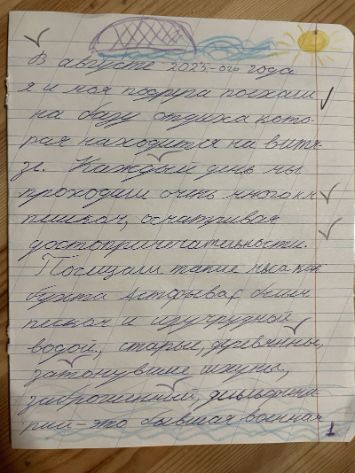 В августе 2025-ого года
я и моя подруга поехали
на базу отдыха кото-
рая находится на Витя-
зе. Каждый день мы
проходили очень много км
пешком, осматривая
достопримечательности.
Посещали такие места как
бухта Астафьева, белым
песком и изумрудной
водой, старые, деревянные,
затонувшие шхуны,
заброшенный,
это бывшая военная
1